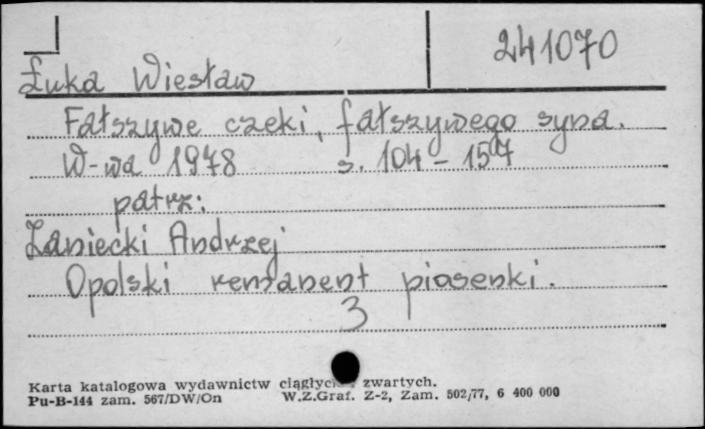 241070
Łuka Wiesław
Fałszywe czeki, fałszywego syna.
W-wa 1978 s. 104-157
patrz:
Łaniecki Andrzej
Opolski remanent piosenki.
3
Karta katalogowa wydawnictw ciągłych i zwartych.
Pu-B-144 zam. 567/DW/On W.Z.Graf. Z-2, Zam. 502/77, 6 400 000